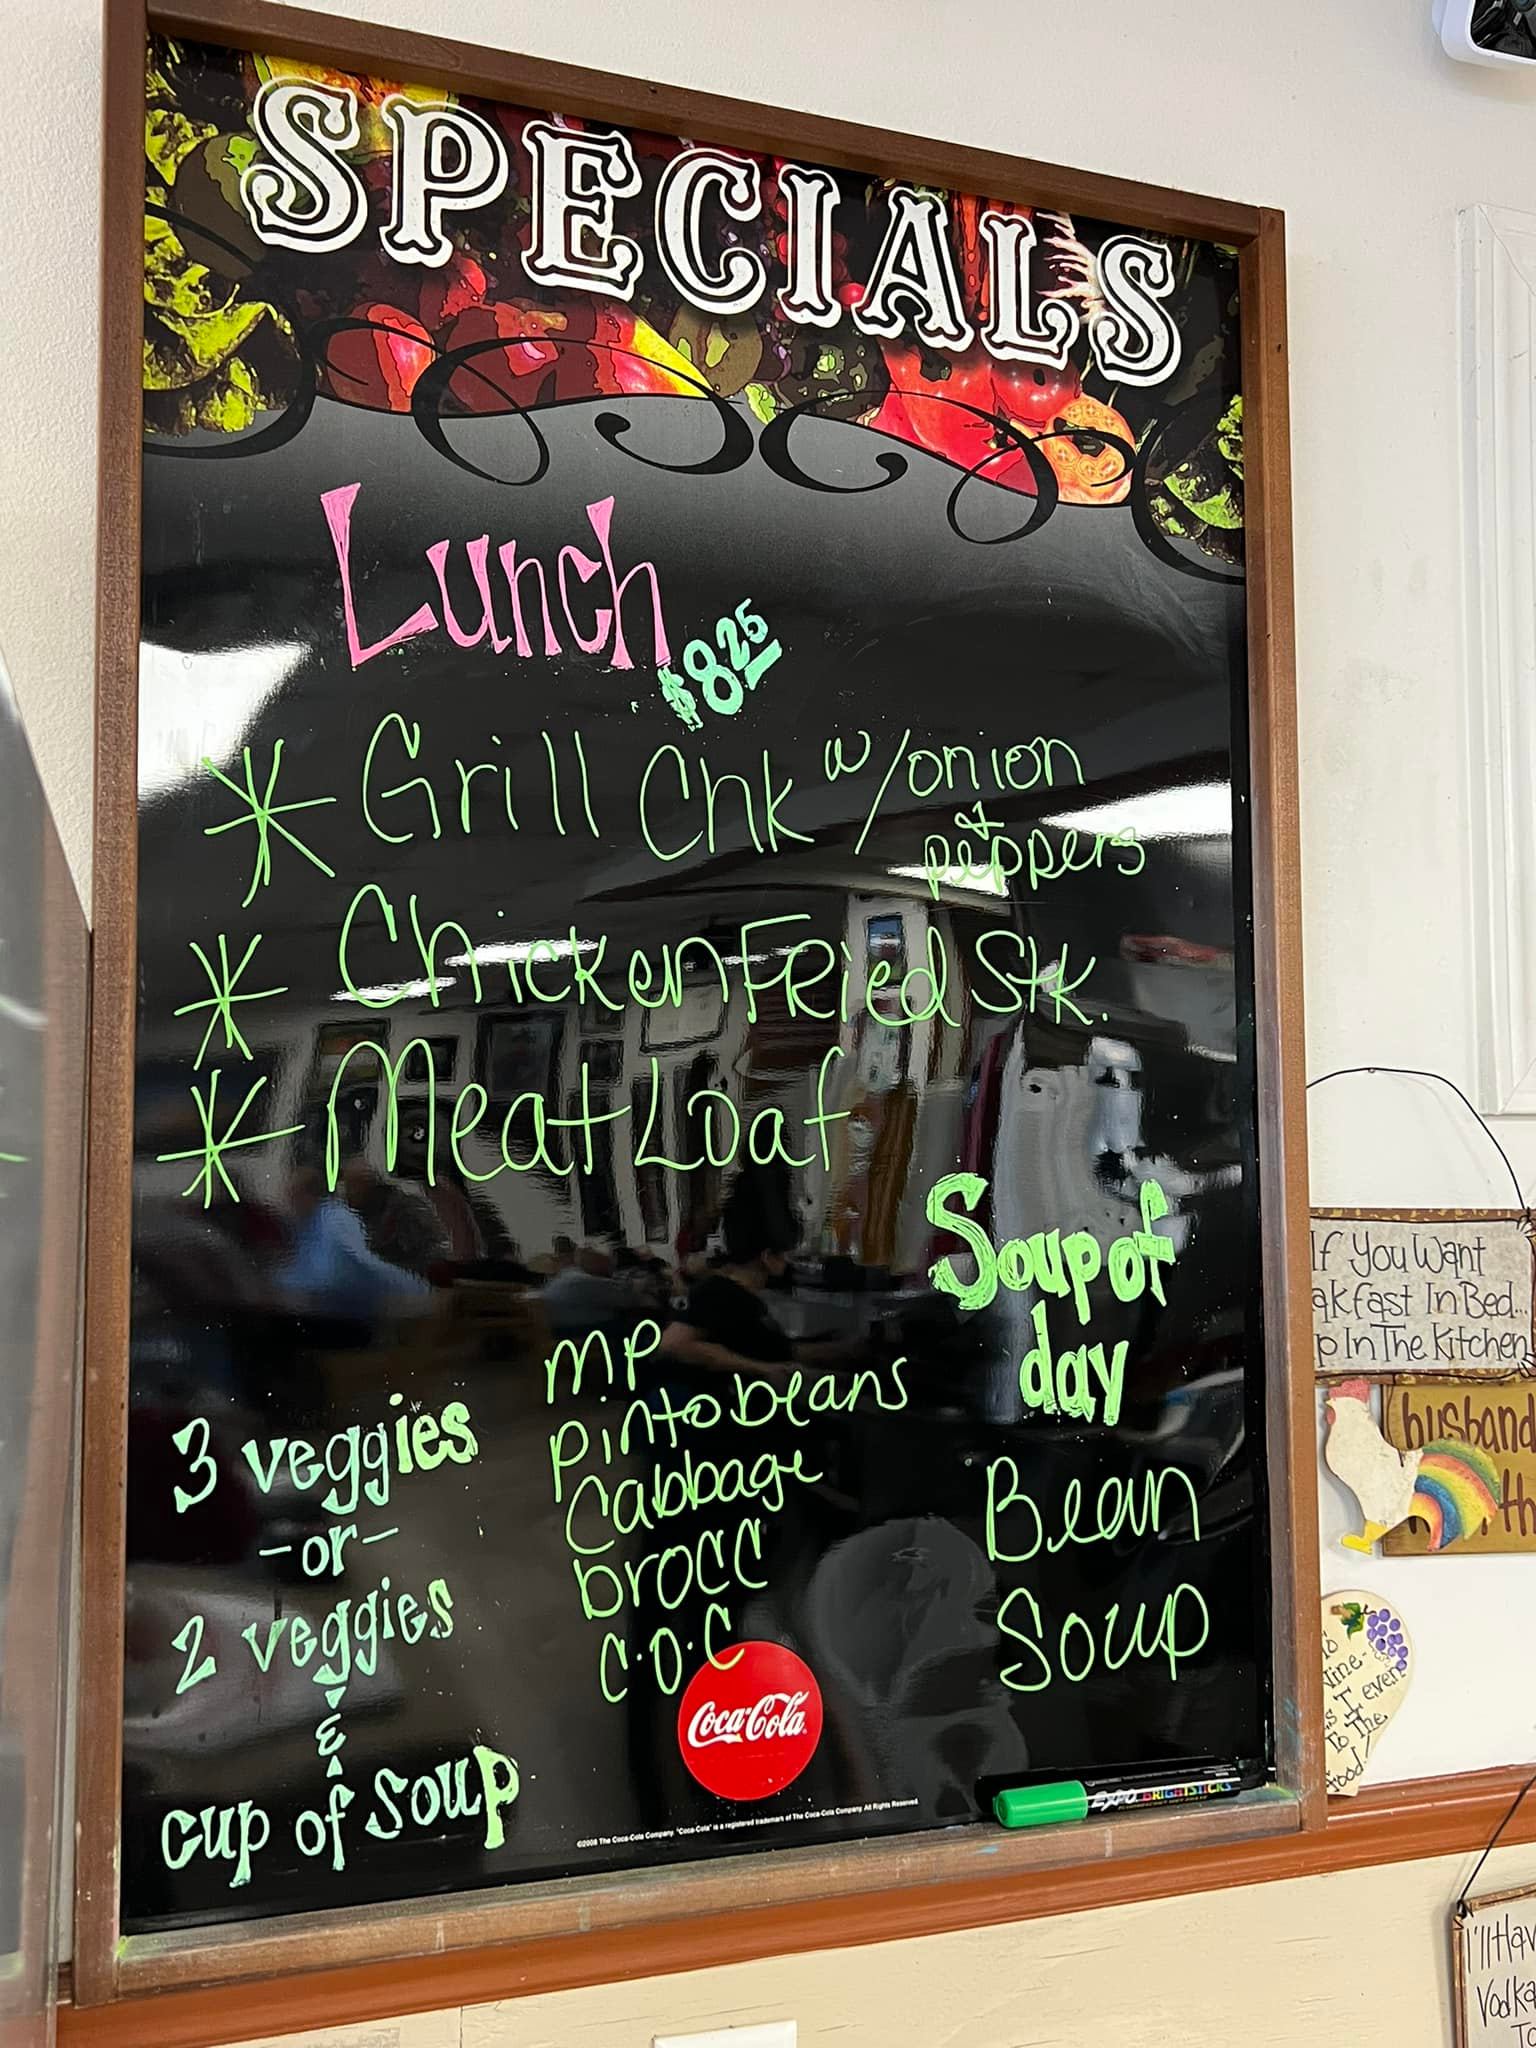 SPECIALS
Lunch
$8.25
* Grill Chk w/onion
& peppers
* Chicken Fried Stk.
* Meat Loaf
Soup of
day
Bean
Soup
3 veggies
-or-
2 veggies
&
cup of soup
MP
pinto beans
Cabbage
brocc
C.O.C
Coca-Cola
©2008 The Coca-Cola Company. "Coca-Cola" is a registered trademark of The Coca-Cola Company. All Rights Reserved.
EXPO BRIGHTSTICKS
If You Want
akfast In Bed...
p In The Kitchen
husband
th
ine-
s I even
To The
food!
I'll Hav
Vodka
To